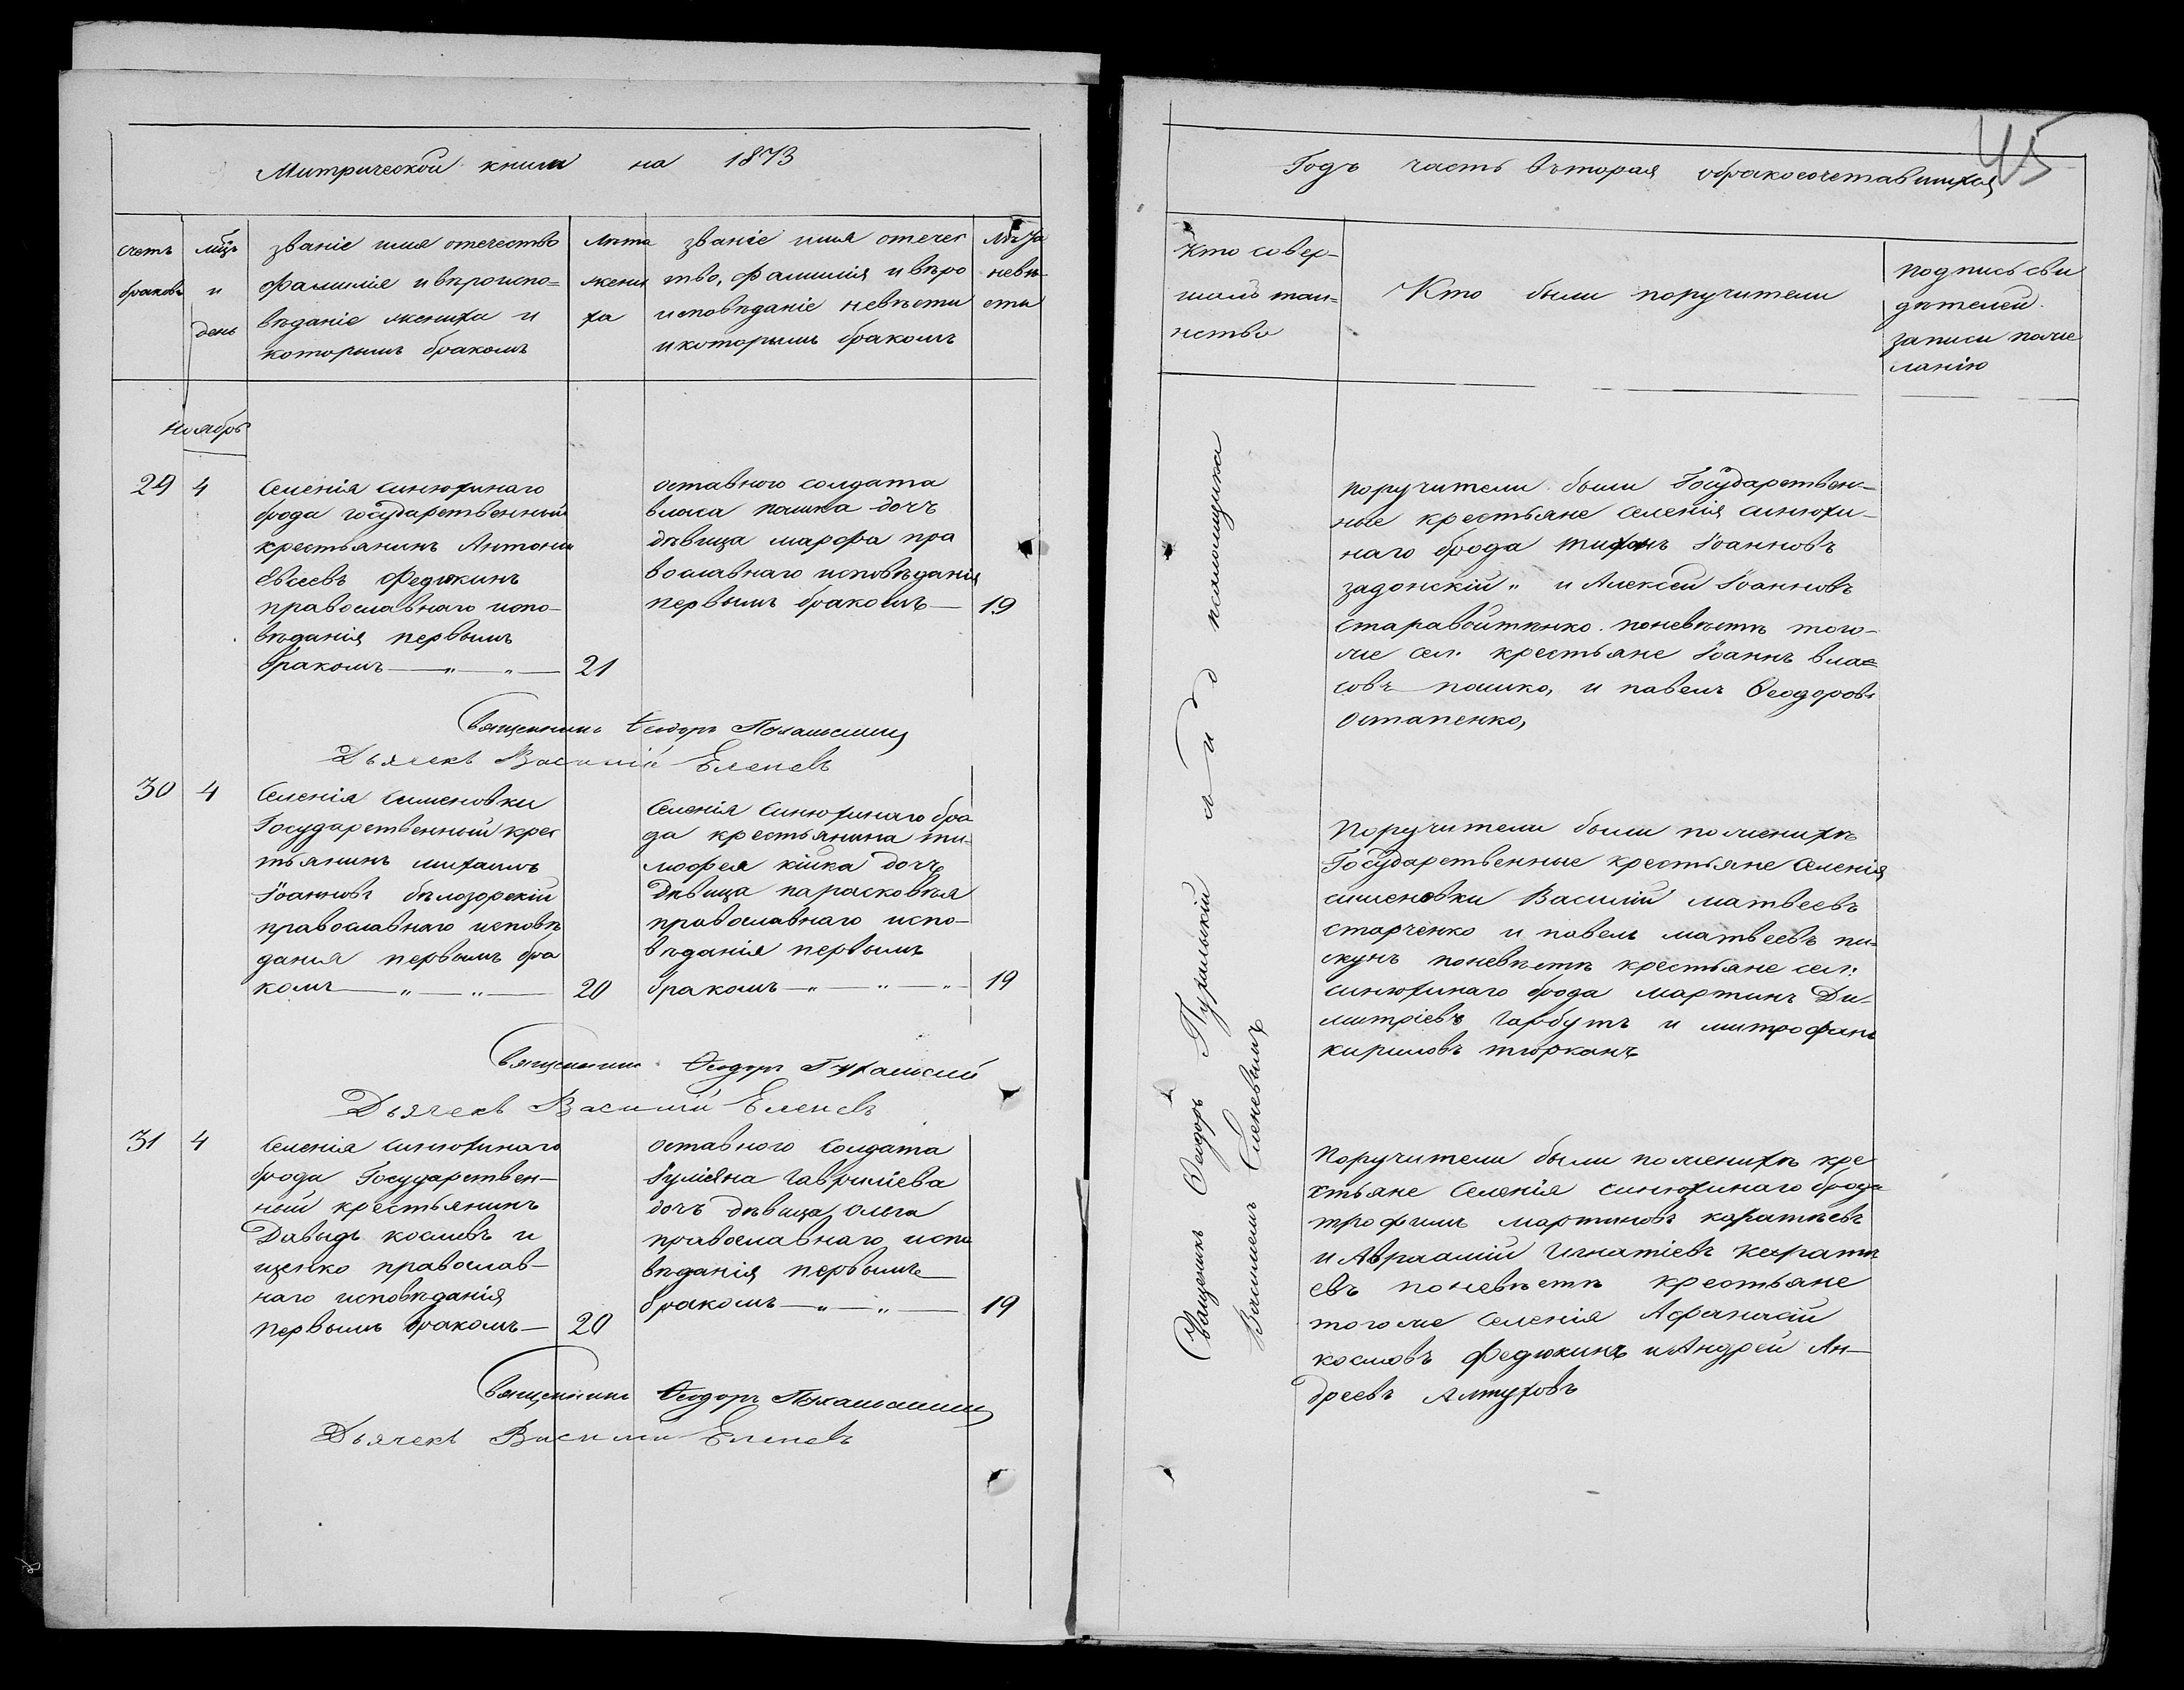 Митрической книги на 1873
счетъ
браковъ
мцъ
и
день
званіе имя отечество
фамиліе и вѣроиспо=
вѣданіе жениха и
которымъ бракомъ
лѣта
жени
ха
званіе имя отечес
тво, фамилія и вѣро
исповѣданіе невѣсти
и которымъ бракомъ
лѣта
невѣ-
сти
Ноябрь
29 4
Селенія синюхинаго
брода государственный
крестьянинъ Антоній
Евсеевъ Федюкинъ
православнаго испо-
вѣданія первымъ
бракомъ 21
оставного солдата
власа пашка дочъ
дѣвица марфа пра
вославнаго исповѣданія
первымъ бракомъ 19
Священникъ Ѳеодоръ
Дьячекъ Василій Еленевъ
30 4
Селенія Сименовки
Государственный крес
тьянинъ михаилъ
Іоанновъ бѣлозорскій
православнаго исповѣ
данія первымъ бра
комъ 20
Селенія Синюхинаго бро
да крестьянина ти-
мофея кійка дочъ
Дѣвица парасковѣя
православнаго испо-
вѣданія первымъ
бракомъ 19
Священникъ Ѳеодоръ
Дьячекъ Василій Еленевъ
31 4
Селенія Синюхинаго
брода Государствен-
ный крестьянинъ
Давыдъ космовъ и
щенко православ-
наго исповѣданія
первымъ бракомъ 20
оставного Солдата
Гавриліева
дочъ дѣвица Ольга
православнаго испо
вѣданія первымъ
бракомъ 19
Священникъ Ѳеодоръ
Дьячекъ Василій Еленевъ
45
Годъ часть въторая обракосочетавшихся
Кто совер-
шалъ таи-
нство
Кто были поручители
подпись сви
дѣтелей
записи поже
ланію
Священникъ Ѳеодоръ и псаломщика
Василіемъ Еленевымъ
поручители были Государствен-
ные крестьяне Селенія синюхи-
наго брода тихонъ Іоанновъ
задонскій и Алексей Іоанновъ
старавойтѣнко. поневѣстѣ того-
же сел. крестьяне Іоаннъ влас
совъ пашко, и павелъ Ѳеодоровъ
Остапенко,
Поручители были поженихѣ
Государственные крестьяне Селенія
сименовки Василій матвеевъ
старченко и павелъ матвеевъ пи-
скунъ поневѣстѣ крестьяне сел:
синюхинаго брода мартинъ Ди-
митріевъ Гарбутъ и митрофанъ
кириловъ тюрканъ
Поручители были поженихѣ кре
стьяне Селенія синюхинаго брода
трофимъ мартиновъ каратѣевъ
и Авраамій Игнатіевъ каратѣ
евъ поневѣстѣ крестьяне
тогоже Селенія Афанасій
космовъ федюкинъ и Андрей Ан-
дреевъ Алтуховъ